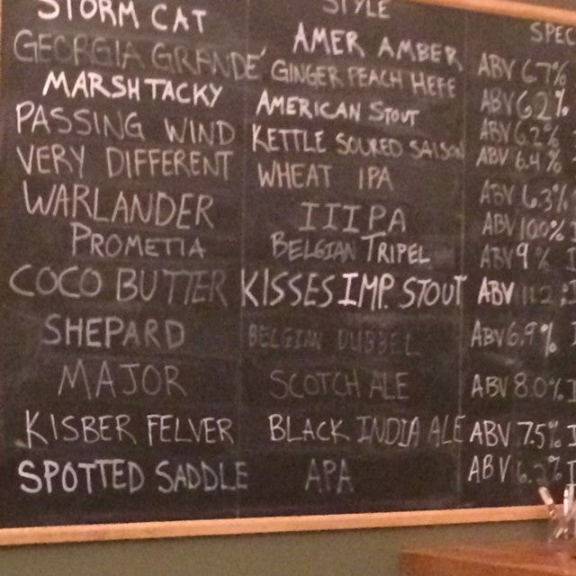 STYLE SPEC
STORM CAT AMER AMBER ABV 6.7%
GEORGIA GRANDE' GINGER PEACH HEFE ABV 6.2%
MARSH TACKY AMERICAN STOUT ABV 6.2%
PASSING WIND KETTLE SOURED SAISON ABV 6.4%
VERY DIFFERENT WHEAT IPA ABV 6.3%
WARLANDER IIIPA ABV 10.0%
PROMETIA BELGIAN TRIPEL ABV 9%
COCO BUTTER KISSES IMP. STOUT ABV 11.2
SHEPARD BELGIAN DUBBEL ABV 6.9%
MAJOR SCOTCH ALE ABV 8.0%
KISBER FELVER BLACK INDIA ALE ABV 7.5%
SPOTTED SADDLE APA ABV